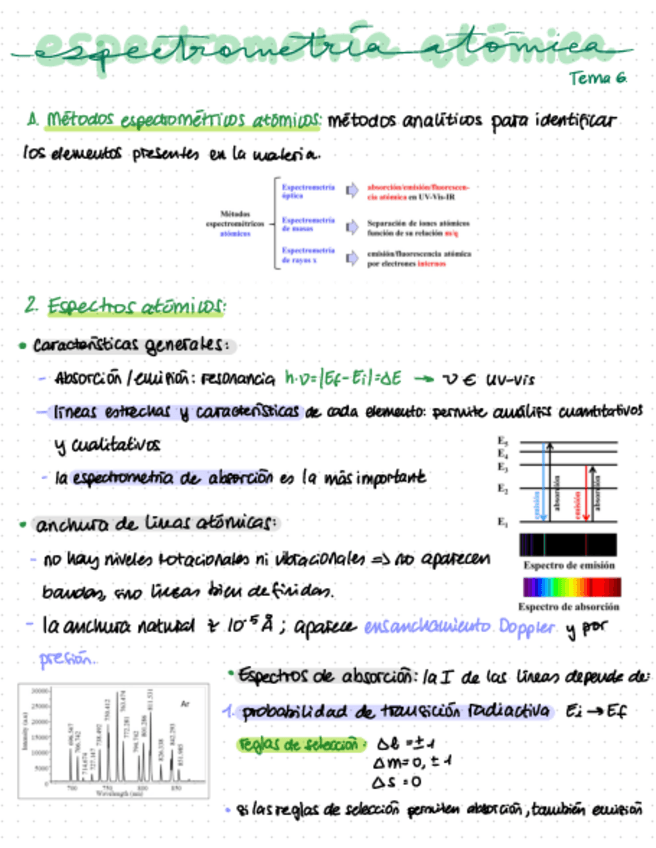 espectrometría atómica
Tema 6
1. Métodos espectrométricos atómicos: métodos analíticos para identificar
los elementos presentes en la materia.
Métodos
espectrométricos
atómicos
Espectrometría
óptica
absorción/emisión/fluorescen-
cia atómica en UV-Vis-IR
Espectrometría
de masas
Separación de iones atómicos
función de su relación m/q
Espectrometría
de rayos x
emisión/fluorescencia atómica
por electrones internos
2. Espectros atómicos:
• características generales:
- Absorción/emisión: resonancia h·ν=|Ef-Ei|=ΔE → ν ∈ UV-vis
- líneas estrechas y características de cada elemento: permite análisis cuantitativos
y cualitativos
- la espectrometría de absorción es la más importante
E5
E4
E3
E2
E1
emisión
absorción
emisión
absorción
Espectro de emisión
Espectro de absorción
• anchura de líneas atómicas:
- no hay niveles rotacionales ni vibracionales => no aparecen
bandas, sino líneas bien definidas.
- la anchura natural ≈ 10⁻⁵ Å ; aparece ensanchamiento Doppler y por
presión.
Ar
Intensity (a.u)
30000
25000
20000
15000
10000
5000
0
696.547
706.742
714.674
727.167
738.492
750.412
763.474
772.281
794.742
801.286
811.531
826.338
842.293
851.985
700
750
800
850
Wavelength (nm)
• Espectros de absorción: la I de las líneas depende de:
1. probabilidad de transición radiactiva Ei → Ef
reglas de selección: Δl = ±1
Δm = 0, ±1
Δs = 0
• si las reglas de selección permiten absorción, también emisión